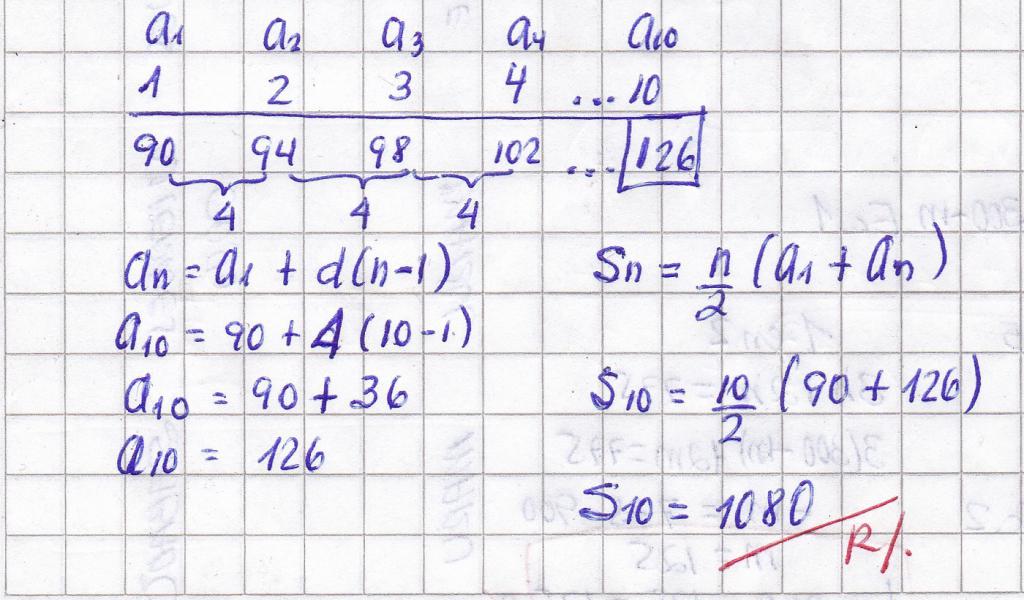 a1 a2 a3 a4 a10
1 2 3 4 ... 10
90 94 98 102 ... 126
4 4 4
an = a1 + d(n-1)
a10 = 90 + 4(10-1)
a10 = 90 + 36
a10 = 126
Sn = n/2 (a1 + an)
S10 = 10/2 (90 + 126)
S10 = 1080
R/.